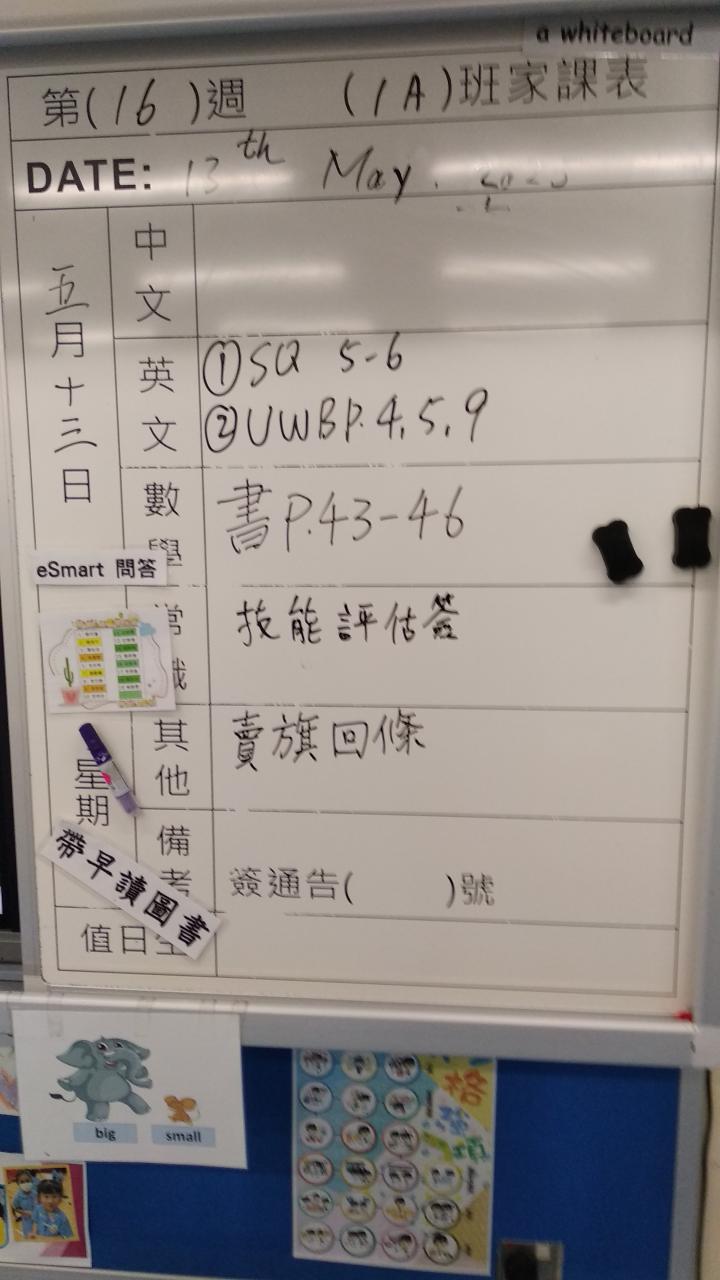 a whiteboard
第(16)週 (1A)班家課表
DATE: 13th May.
五月十三日
中文
英文
①SQ 5-6
②UWB P.4,5,9
數學
書P.43-46
eSmart 問答
常
技能評估簽
其他
賣旗回條
星期
備考
簽通告( )號
帶早讀圖書
值日生
big
small
格
強
項